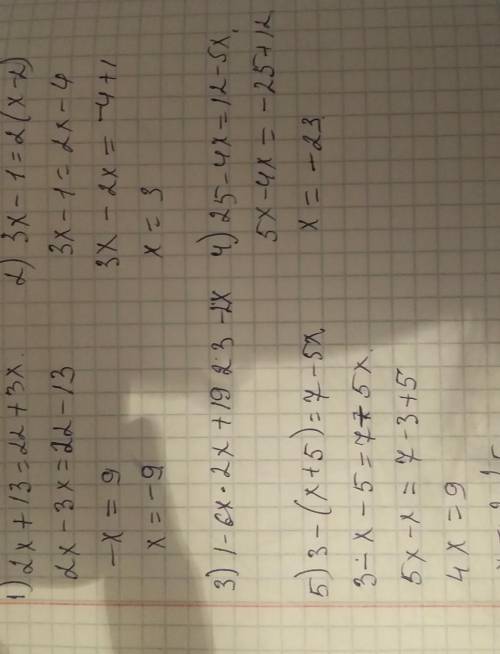 1) 2x + 13 = 22 + 3x.
2x - 3x = 22 - 13
-x = 9
x = -9
2) 3x - 1 = 2(x - 2)
3x - 1 = 2x - 4
3x - 2x = -4 + 1
x = 3
3) 1 - 6x · 2x + 19 23 - 2x
4) 25 - 4x = 12 - 5x.
5x - 4x = -25 + 12
x = -23
5) 3 - (x + 5) = 7 - 5x.
3 - x - 5 = 7 - 5x.
5x - x = 7 - 3 + 5
4x = 9